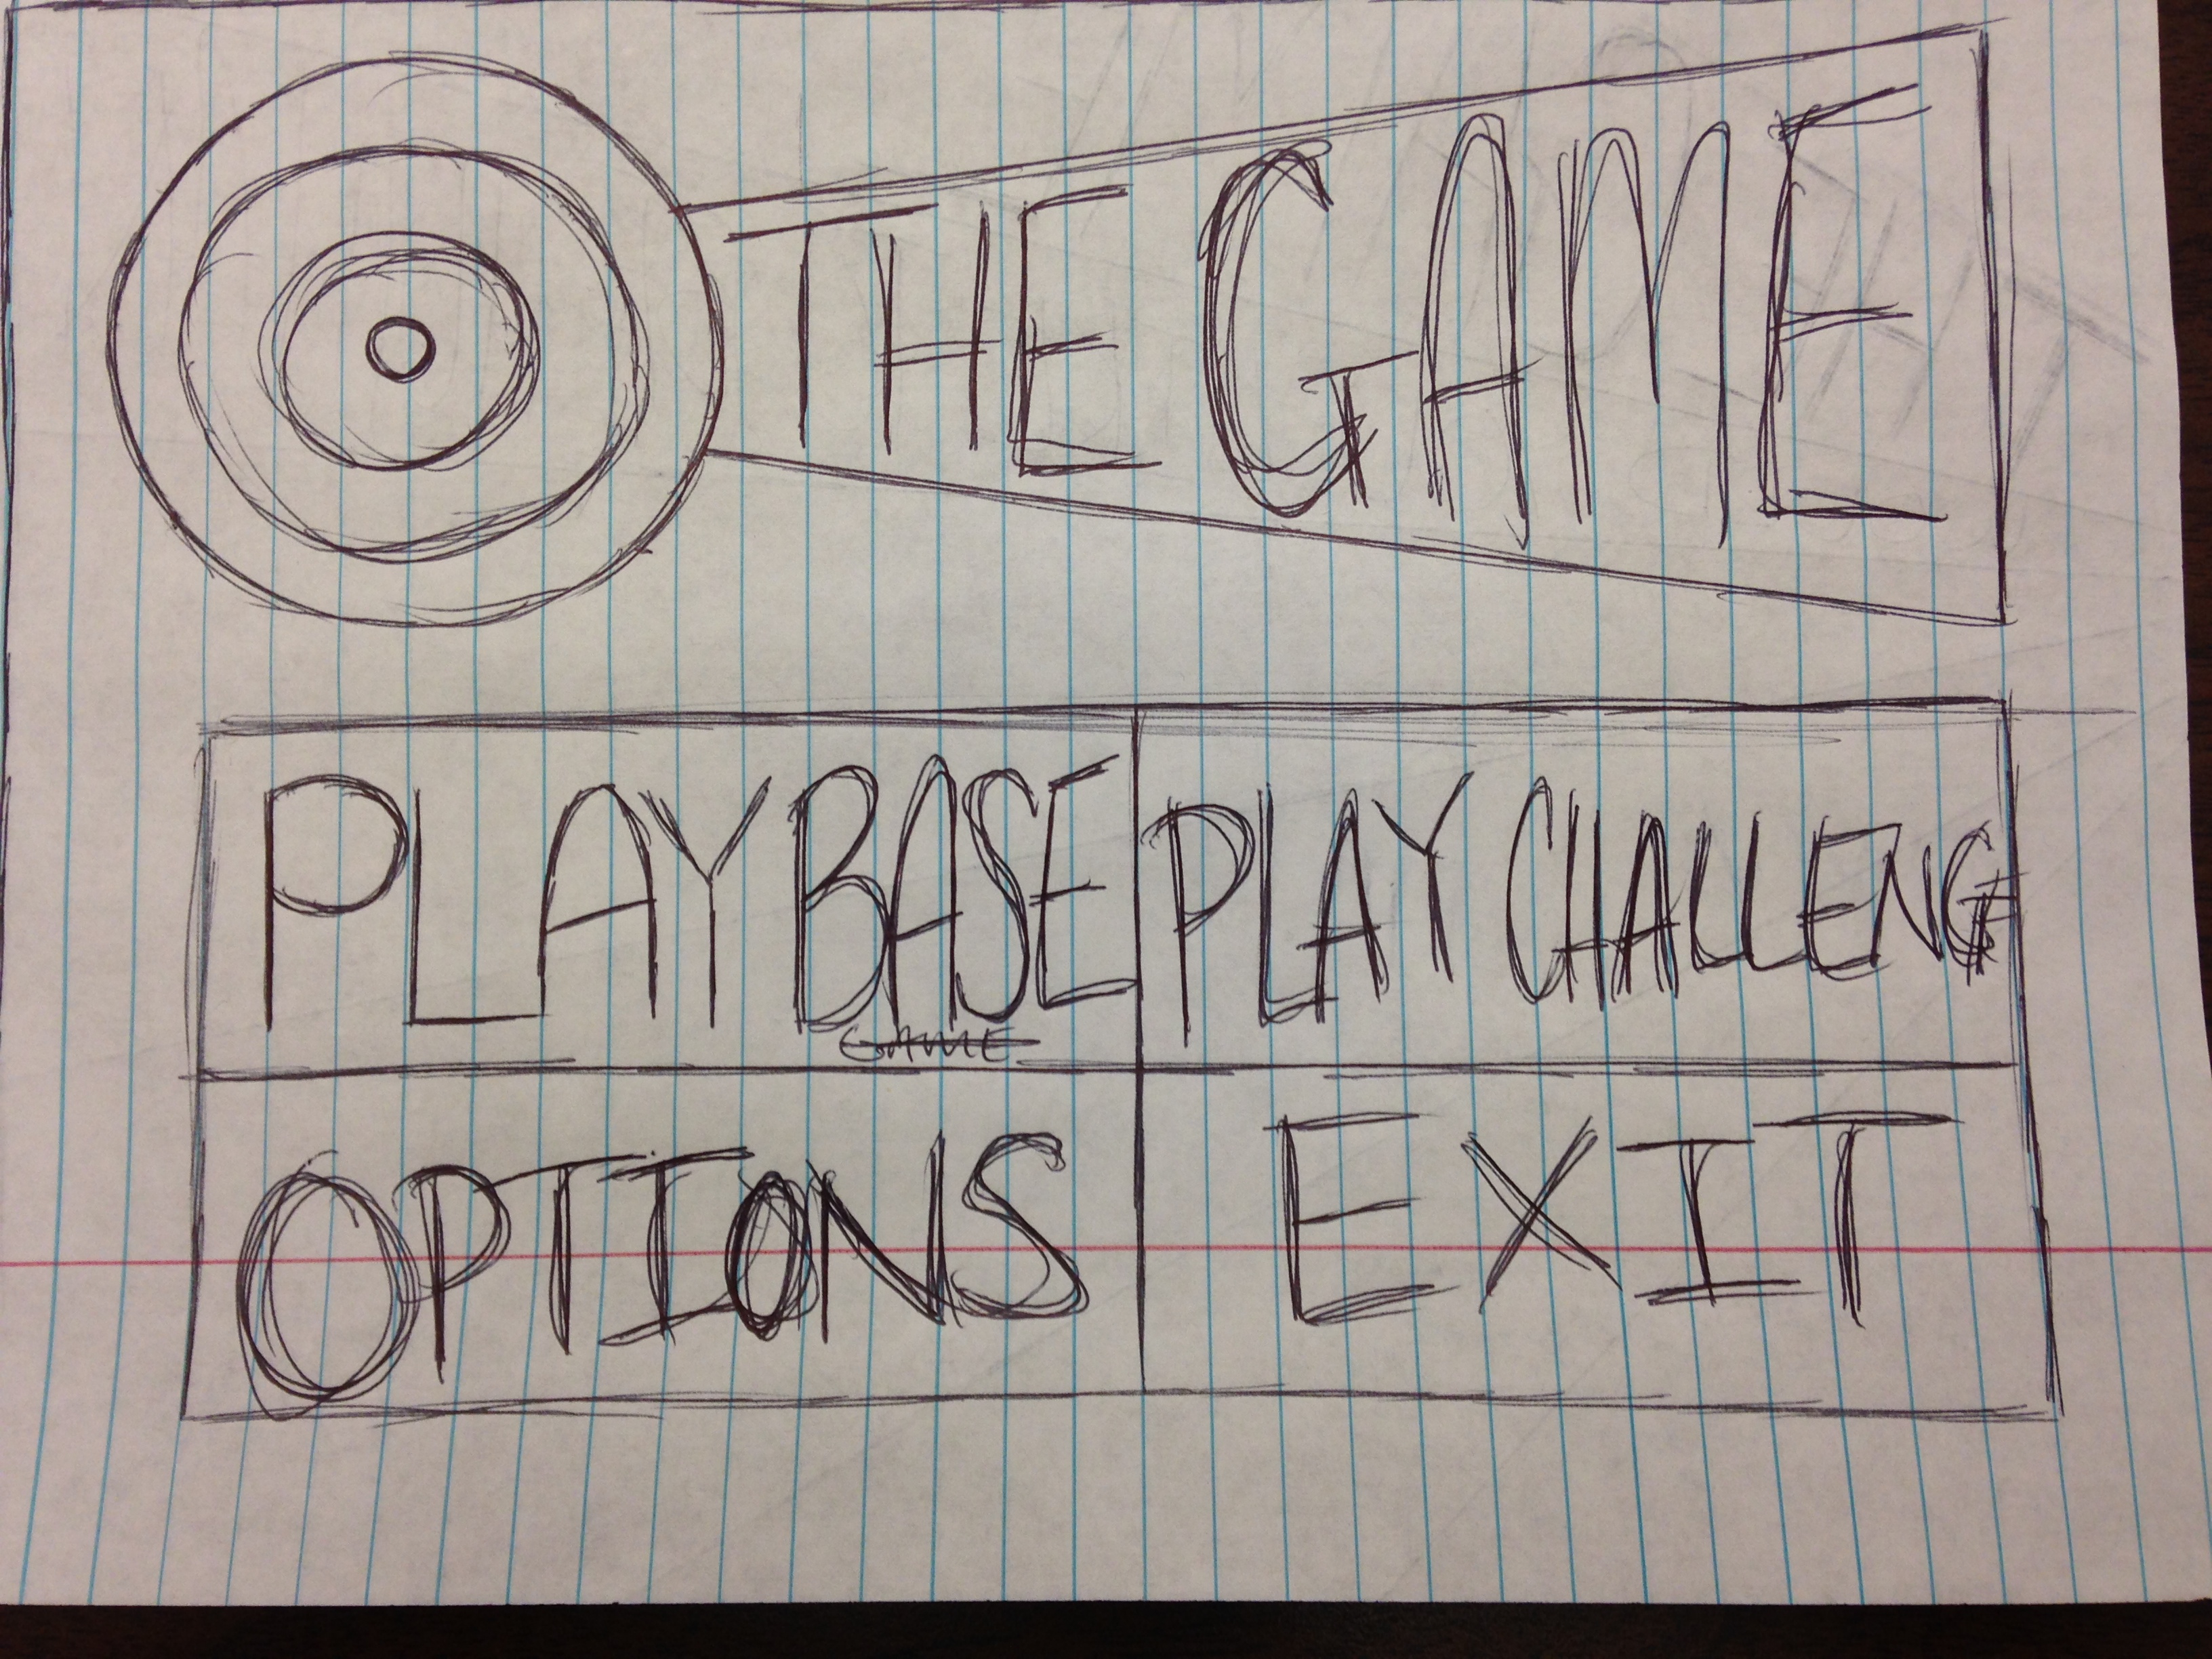 THE GAME
PLAY BASE
GAME
PLAY CHALLENGE
OPTIONS
EXIT